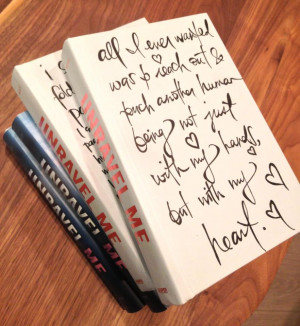 all I ever wanted
was to reach out &
touch another human
being not just
with my hands,
but with my
heart.
UNRAVEL ME
UNRAVEL ME
UNRAVEL ME
UNRAVEL ME